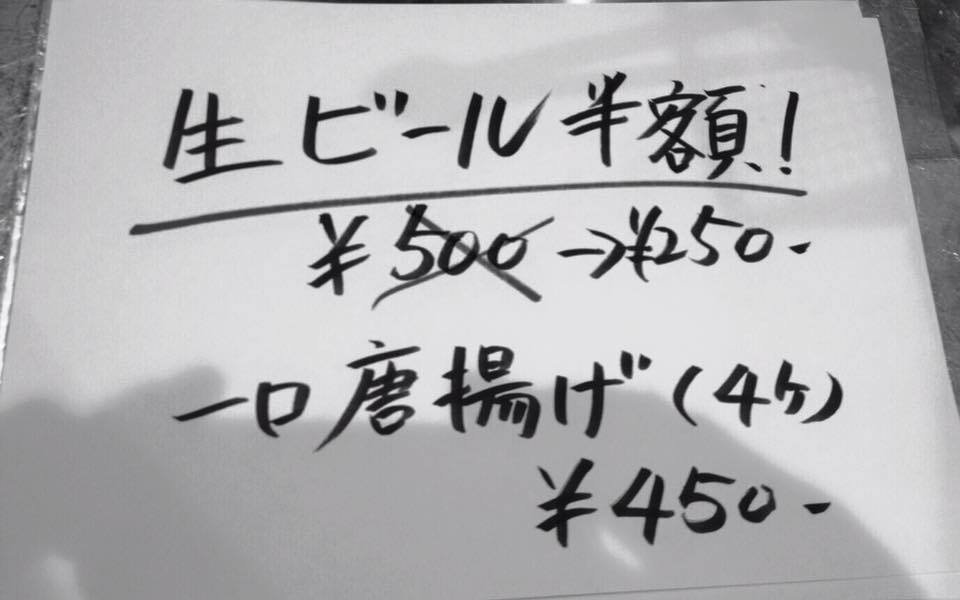 生ビール半額!
¥500→¥250-
一口唐揚げ(4ヶ)
¥450-